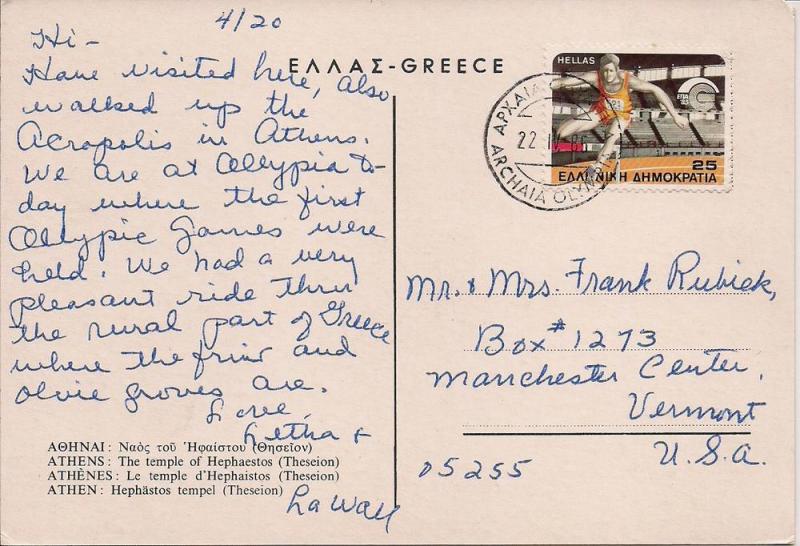 4/20
Hi-
Have visited here, also
walked up the
Acropolis in Athens.
We are at Ollypia to-
day where the first
Ollypic Games were
held. We had a very
pleasant ride thru
the rural part of Greece
where the and
olvie groves are.
Love,
Letha &
LaWall
ΑΘΗΝΑΙ: Ναὸς τοῦ Ἡφαίστου (Θησεῖον)
ATHENS: The temple of Hephaestos (Theseion)
ATHÈNES: Le temple d'Hephaistos (Theseion)
ATHEN: Hephästos tempel (Theseion)
ΕΛΛΑΣ-GREECE
HELLAS
25
ΕΛΛΗΝΙΚΗ ΔΗΜΟΚΡΑΤΙΑ
ΑΡΧΑΙΑ
22
ARCHAIA OLYMPIA
Mr. & Mrs. Frank Rubick,
Box #1273
Manchester Center,
Vermont
U.S.A.
05255